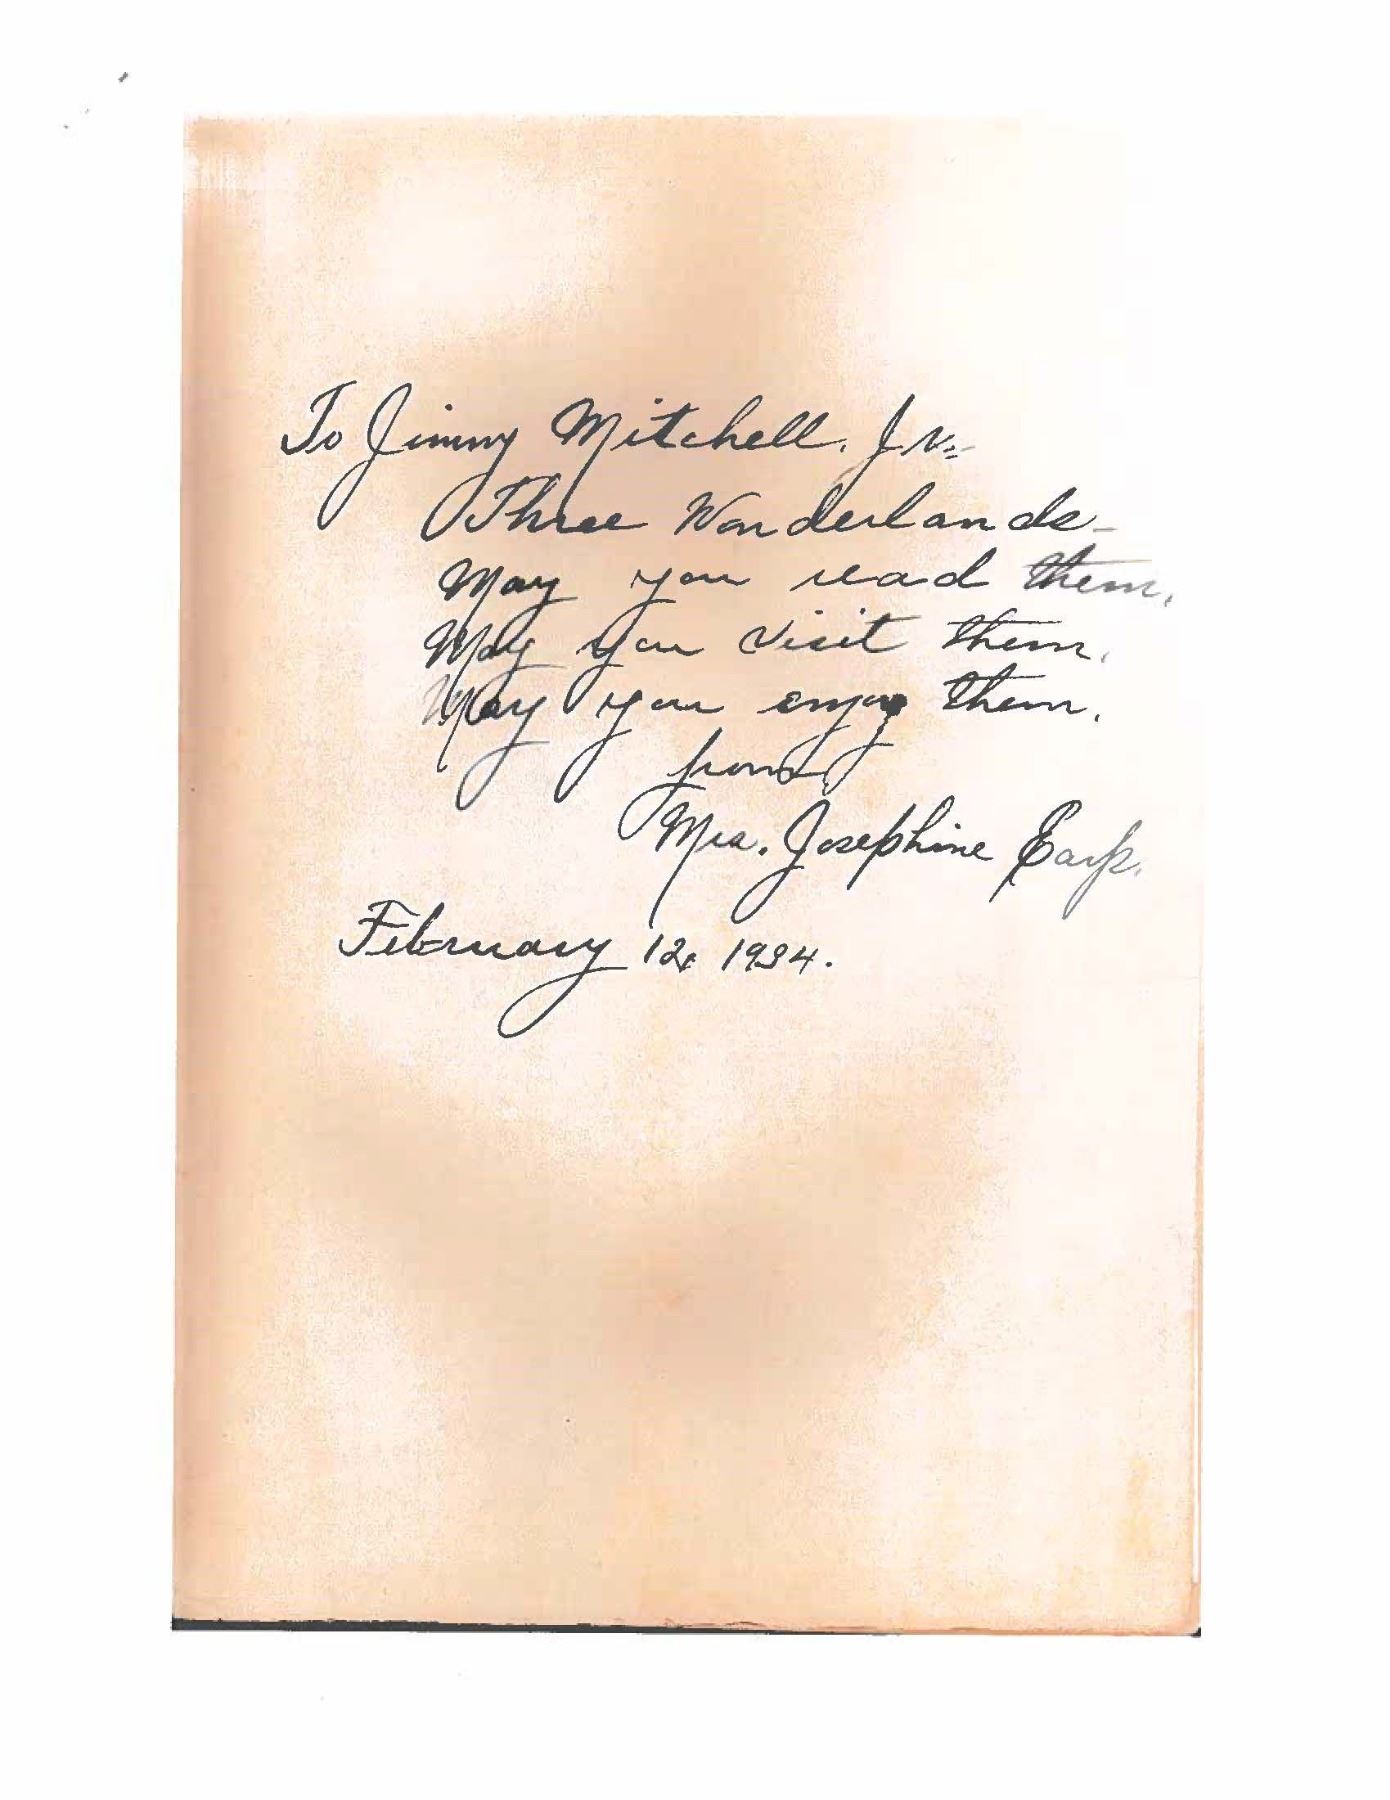 To Jimmy Mitchell, Jr.:-
Three Wonderlands-
May you read them,
May you visit them,
May you enjoy them.
from
Mrs. Josephine Earp.
February 12, 1934.